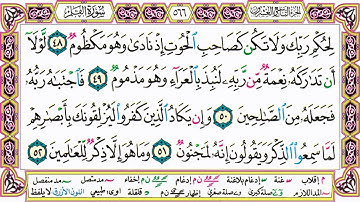 الجزء التاسع والعشرون ٥٦٦ سورة القلم
لِحُكْمِ رَبِّكَ وَلَا تَكُن كَصَاحِبِ الْحُوتِ إِذْ نَادَىٰ وَهُوَ مَكْظُومٌ ٤٨ لَّوْلَا
أَن تَدَارَكَهُ نِعْمَةٌ مِّن رَّبِّهِ لَنُبِذَ بِالْعَرَاءِ وَهُوَ مَذْمُومٌ ٤٩ فَاجْتَبَاهُ رَبُّهُ
فَجَعَلَهُ مِنَ الصَّالِحِينَ ٥٠ وَإِن يَكَادُ الَّذِينَ كَفَرُوا لَيُزْلِقُونَكَ بِأَبْصَارِهِمْ
لَمَّا سَمِعُوا الذِّكْرَ وَيَقُولُونَ إِنَّهُ لَمَجْنُونٌ ٥١ وَمَا هُوَ إِلَّا ذِكْرٌ لِّلْعَالَمِينَ ٥٢